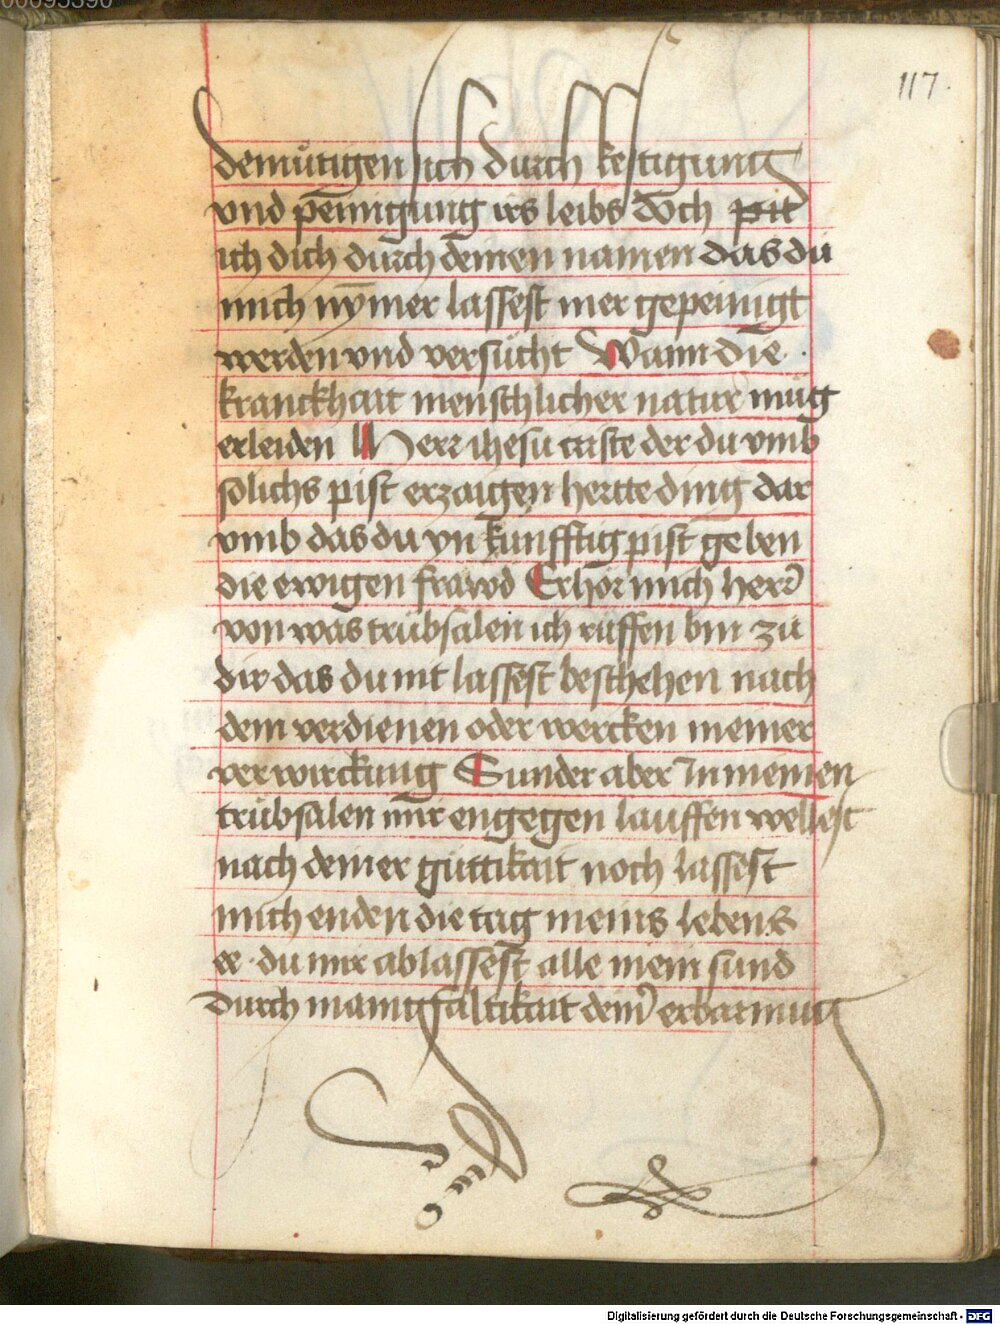 00095390
117.
demütigen sich durch kestigung
vnd peinigung irs leibs doch pit
ich dich durch deinen namen das du
mich nymer lassest mer gepeinigt
werden vnd versücht Wann die
kranckhait menschlicher natur müg
erleiden Herr ihesu criste der du vmb
solichs pist erzaigen hertte ding dar
vmb das du yn kunfftig pist geben
die ewigen fräwd Erhör mich herr
von was trübsalen ich rüffen bin zü
dir das du nit lassest beschehen nach
dem verdienen oder wercken meiner
verwirckung Sunder aber In meinen
trübsalen mir engegen lauffen wellest
nach deiner güttikait noch lassest
mich enden die tag meins lebens
ee du mir ablassest alle mein sund
durch manigfaltikait deiner erbarmung
Digitalisierung gefördert durch die Deutsche Forschungsgemeinschaft - DFG